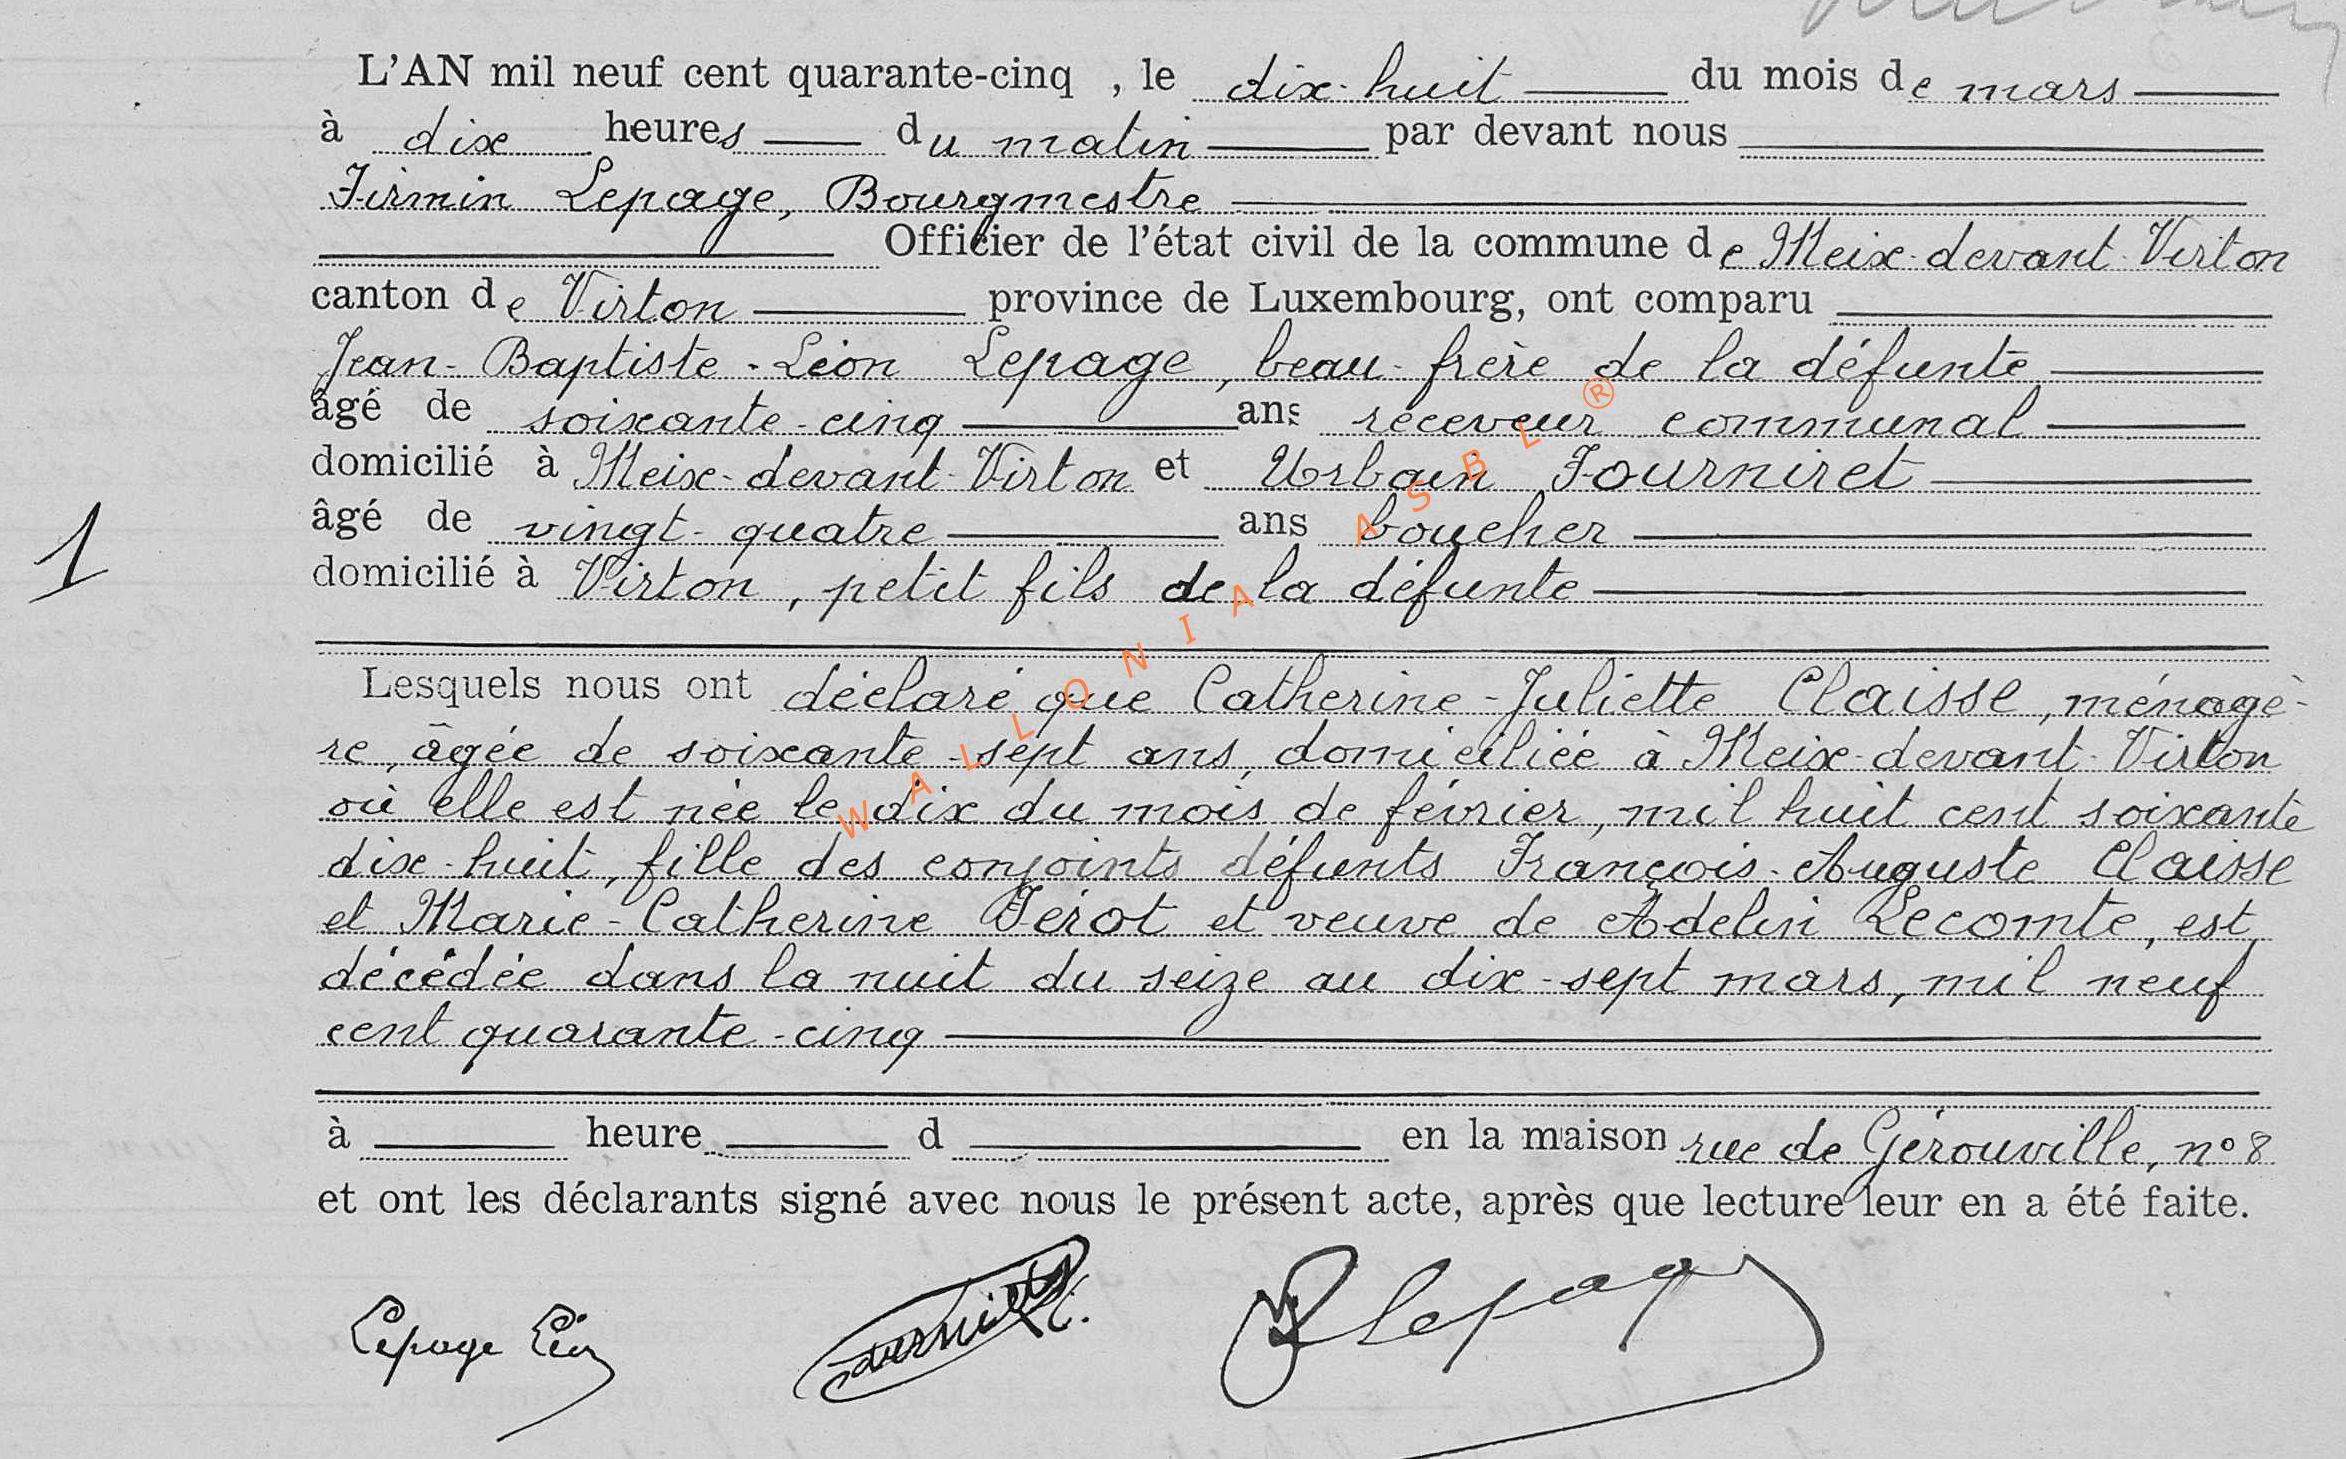 L'AN mil neuf cent quarante-cinq , le dix-huit du mois de mars
à dix heures du matin par devant nous
Firmin Lepage, Bourgmestre
Officier de l'état civil de la commune de Meix-devant-Virton
canton de Virton province de Luxembourg, ont comparu
Jean-Baptiste-Léon Lepage, beau-frère de la défunte
âgé de soixante-cinq ans receveur communal
domicilié à Meix-devant-Virton et Urbain Fourniret
âgé de vingt-quatre ans boucher
domicilié à Virton, petit fils de la défunte
1
Lesquels nous ont déclaré que Catherine-Juliette Claisse, ménagè-
re, âgée de soixante-sept ans, domiciliée à Meix-devant-Virton
où elle est née le dix du mois de février, mil huit cent soixante
dix-huit, fille des conjoints défunts François-Auguste Claisse
et Marie-Catherine Férot et veuve de Adelin Lecomte, est
décédée dans la nuit du seize au dix-sept mars, mil neuf
cent quarante-cinq
à heure d en la maison rue de Gérouville, n° 8
et ont les déclarants signé avec nous le présent acte, après que lecture leur en a été faite.
Lepage Léon Lepage
WALLONIA ASBL ®